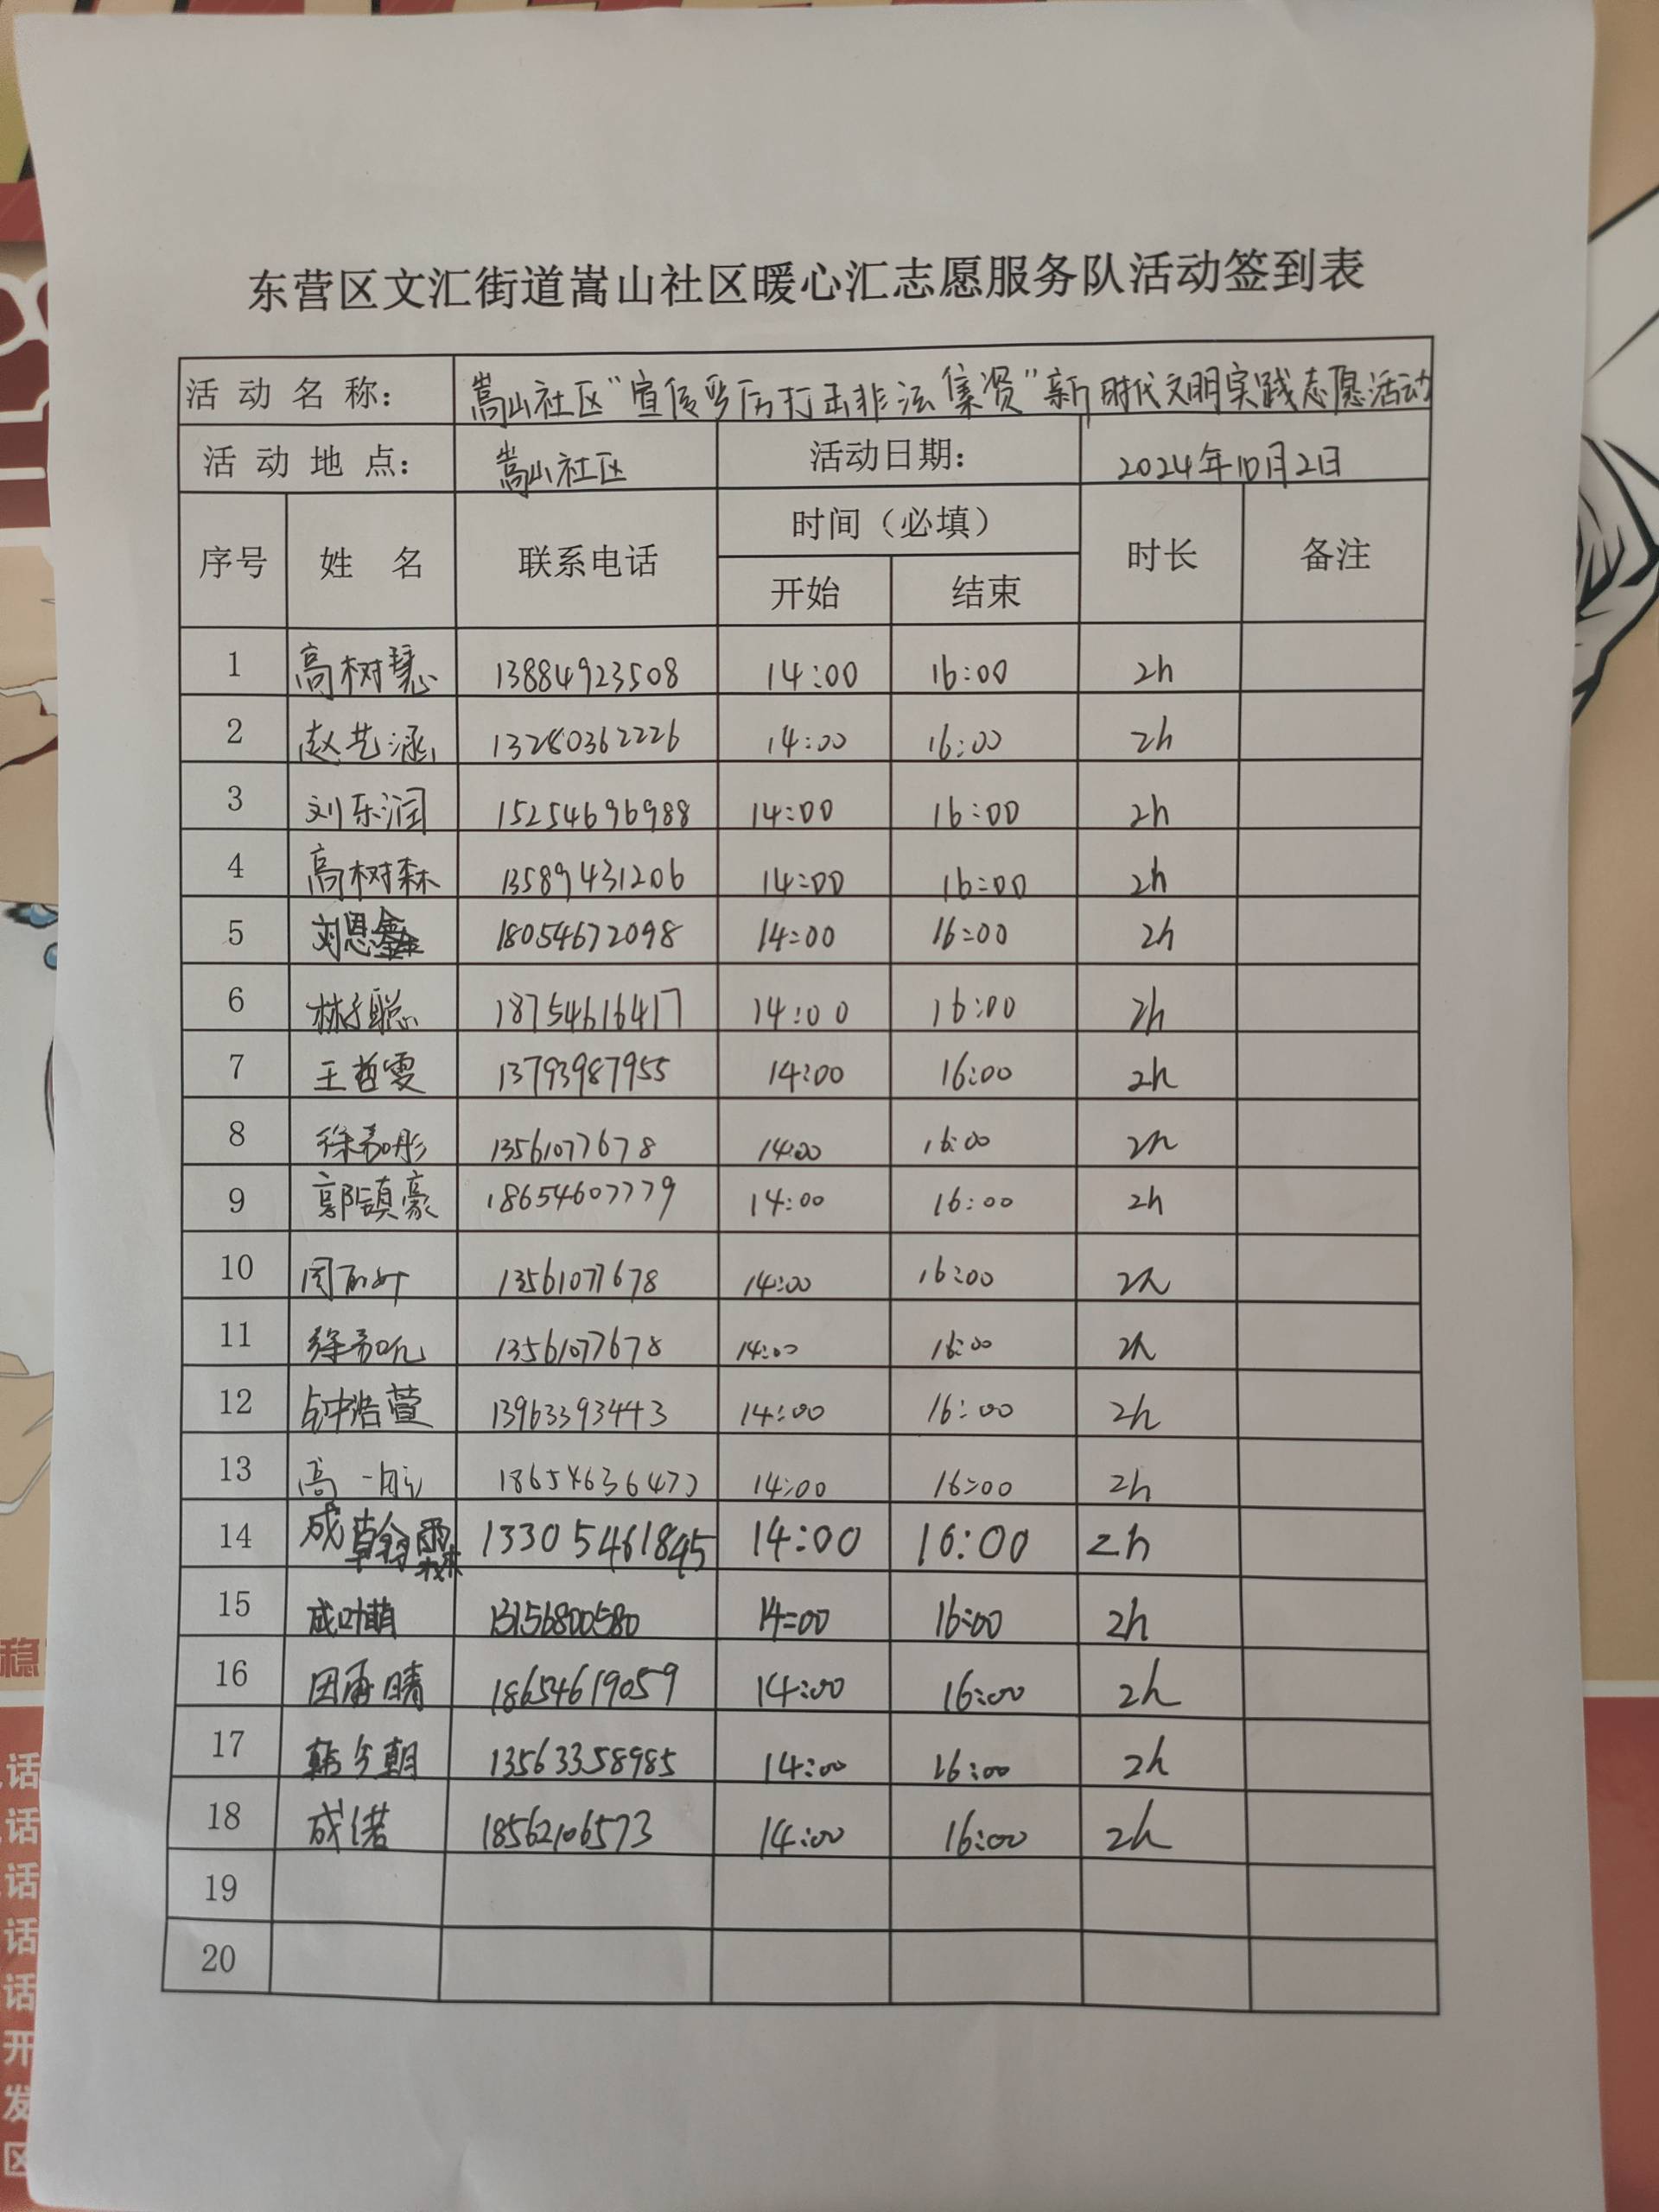 东营区文汇街道嵩山社区暖心汇志愿服务队活动签到表
活动名称： 嵩山社区“宣传严厉打击非法集资”新时代文明实践志愿活动
活动地点： 嵩山社区 活动日期： 2024年10月2日
序号 姓名 联系电话 时间（必填） 时长 备注
开始 结束
1 高树慧 13884923508 14:00 16:00 2h
2 赵艺涵 13280362226 14:00 16:00 2h
3 刘乐润 15254696988 14:00 16:00 2h
4 高树森 13589431206 14:00 16:00 2h
5 刘恩鑫 18054672098 14:00 16:00 2h
6 林子聪 18754616417 14:00 16:00 2h
7 王哲雯 13793987955 14:00 16:00 2h
8 徐嘉彤 13561077678 14:00 16:00 2h
9 郭镇豪 18654607779 14:00 16:00 2h
10 周 13561077678 14:00 16:00 2h
11 徐 13561077678 14:00 16:00 2h
12 钟浩萱 13963393443 14:00 16:00 2h
13 高一航 14:00 16:00 2h
14 成翰霖 13305461845 14:00 16:00 2h
15 成叶萌 13156800580 14:00 16:00 2h
16 田雨晴 18654619059 14:00 16:00 2h
17 韩今朝 13563358985 14:00 16:00 2h
18 成偌 18562106573 14:00 16:00 2h
19
20
稳
话
话
话
话
话
开
发
区